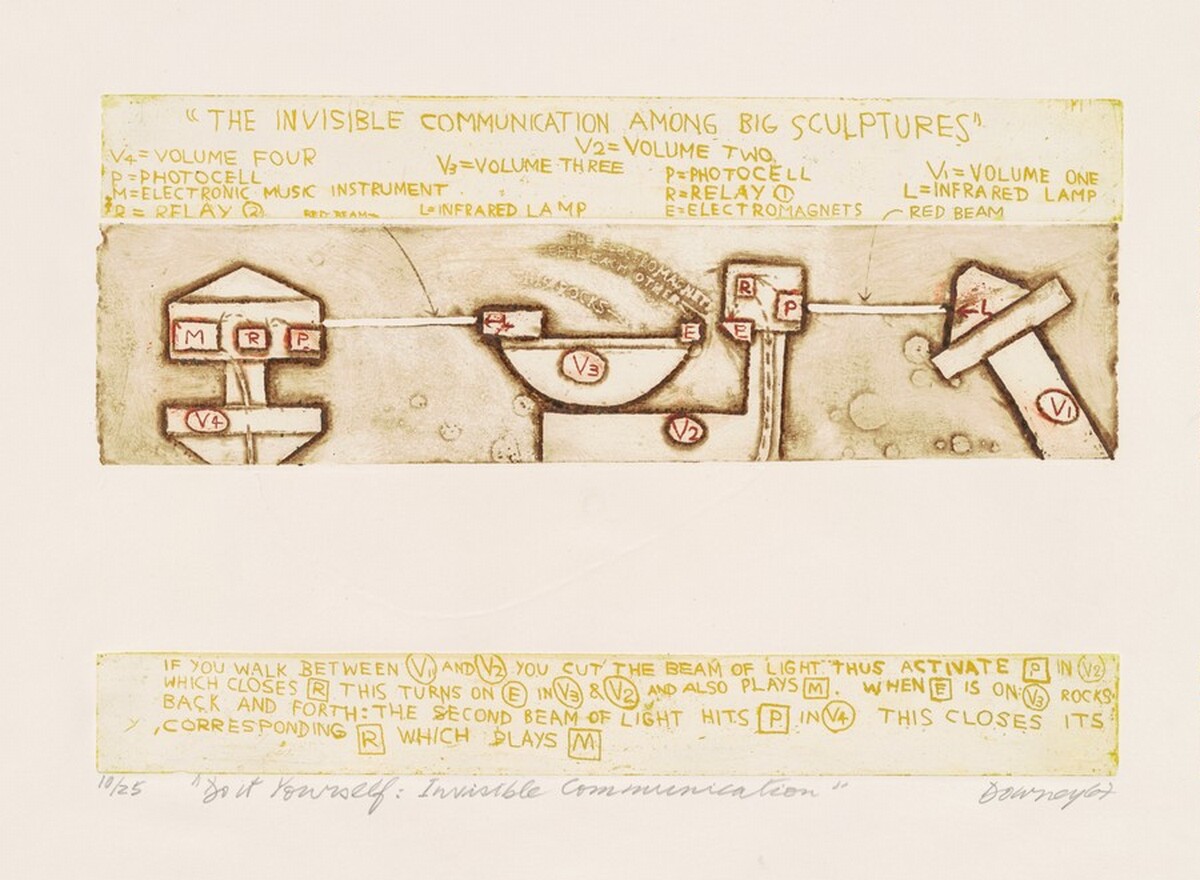 "THE INVISIBLE COMMUNICATION AMONG BIG SCULPTURES"
V4=VOLUME FOUR
P=PHOTOCELL
M=ELECTRONIC MUSIC INSTRUMENT
R=RELAY ②
RED BEAM
V3=VOLUME THREE
L=INFRARED LAMP
V2=VOLUME TWO
P=PHOTOCELL
R=RELAY ①
E=ELECTROMAGNETS
V1=VOLUME ONE
L=INFRARED LAMP
RED BEAM
THE ELECTROMAGNETS
REPEL EACH OTHER
ROCKS
M R P
V4
L
E
V3
R
P
E
V2
L
V1
IF YOU WALK BETWEEN V1 AND V2 YOU CUT THE BEAM OF LIGHT THUS ACTIVATE P IN V2
WHICH CLOSES R THIS TURNS ON E IN V3 & V2 AND ALSO PLAYS M. WHEN E IS ON V3 ROCKS
BACK AND FORTH: THE SECOND BEAM OF LIGHT HITS P IN V4 THIS CLOSES ITS
CORRESPONDING R WHICH PLAYS M
10/25 "Do it Yourself: Invisible Communication" Downey 67